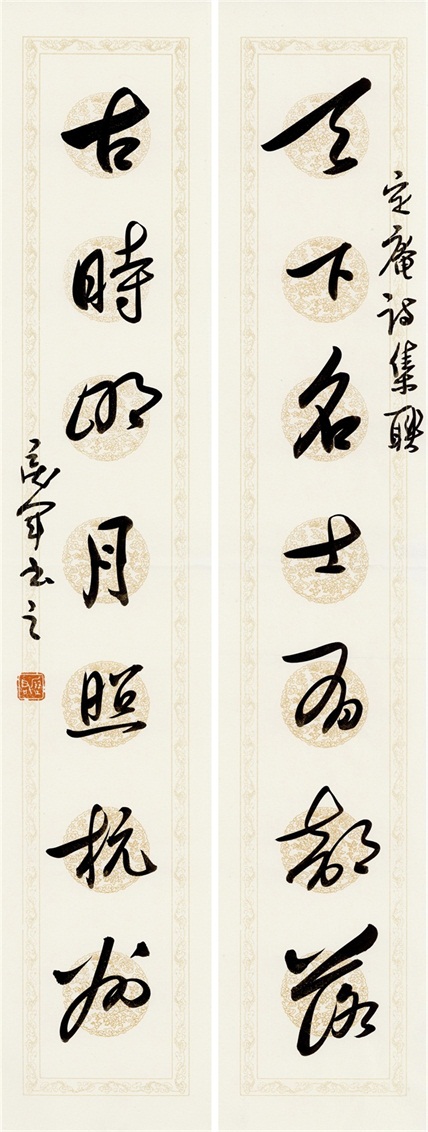 定庵詩集聯
天下名士有部落
古時明月照杭州
軍書之